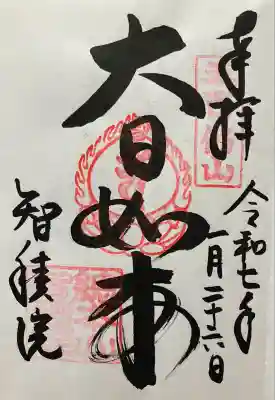 奉拝
令和七年
一月二十六日
大日如来
智積院